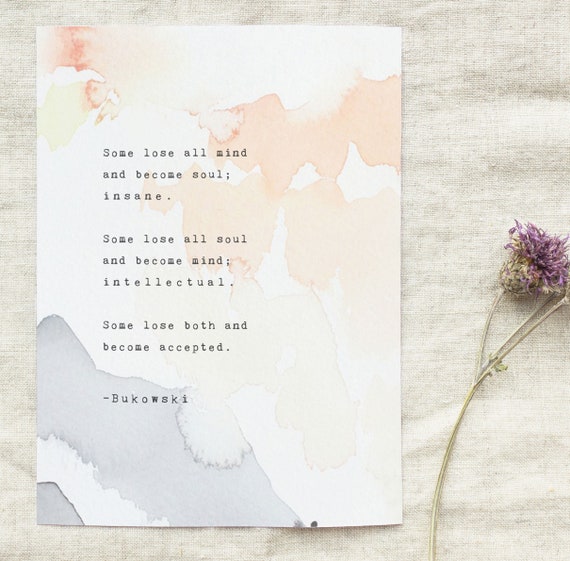 Some lose all mind
and become soul;
insane.
Some lose all soul
and become mind;
intellectual.
Some lose both and
become accepted.
-Bukowski